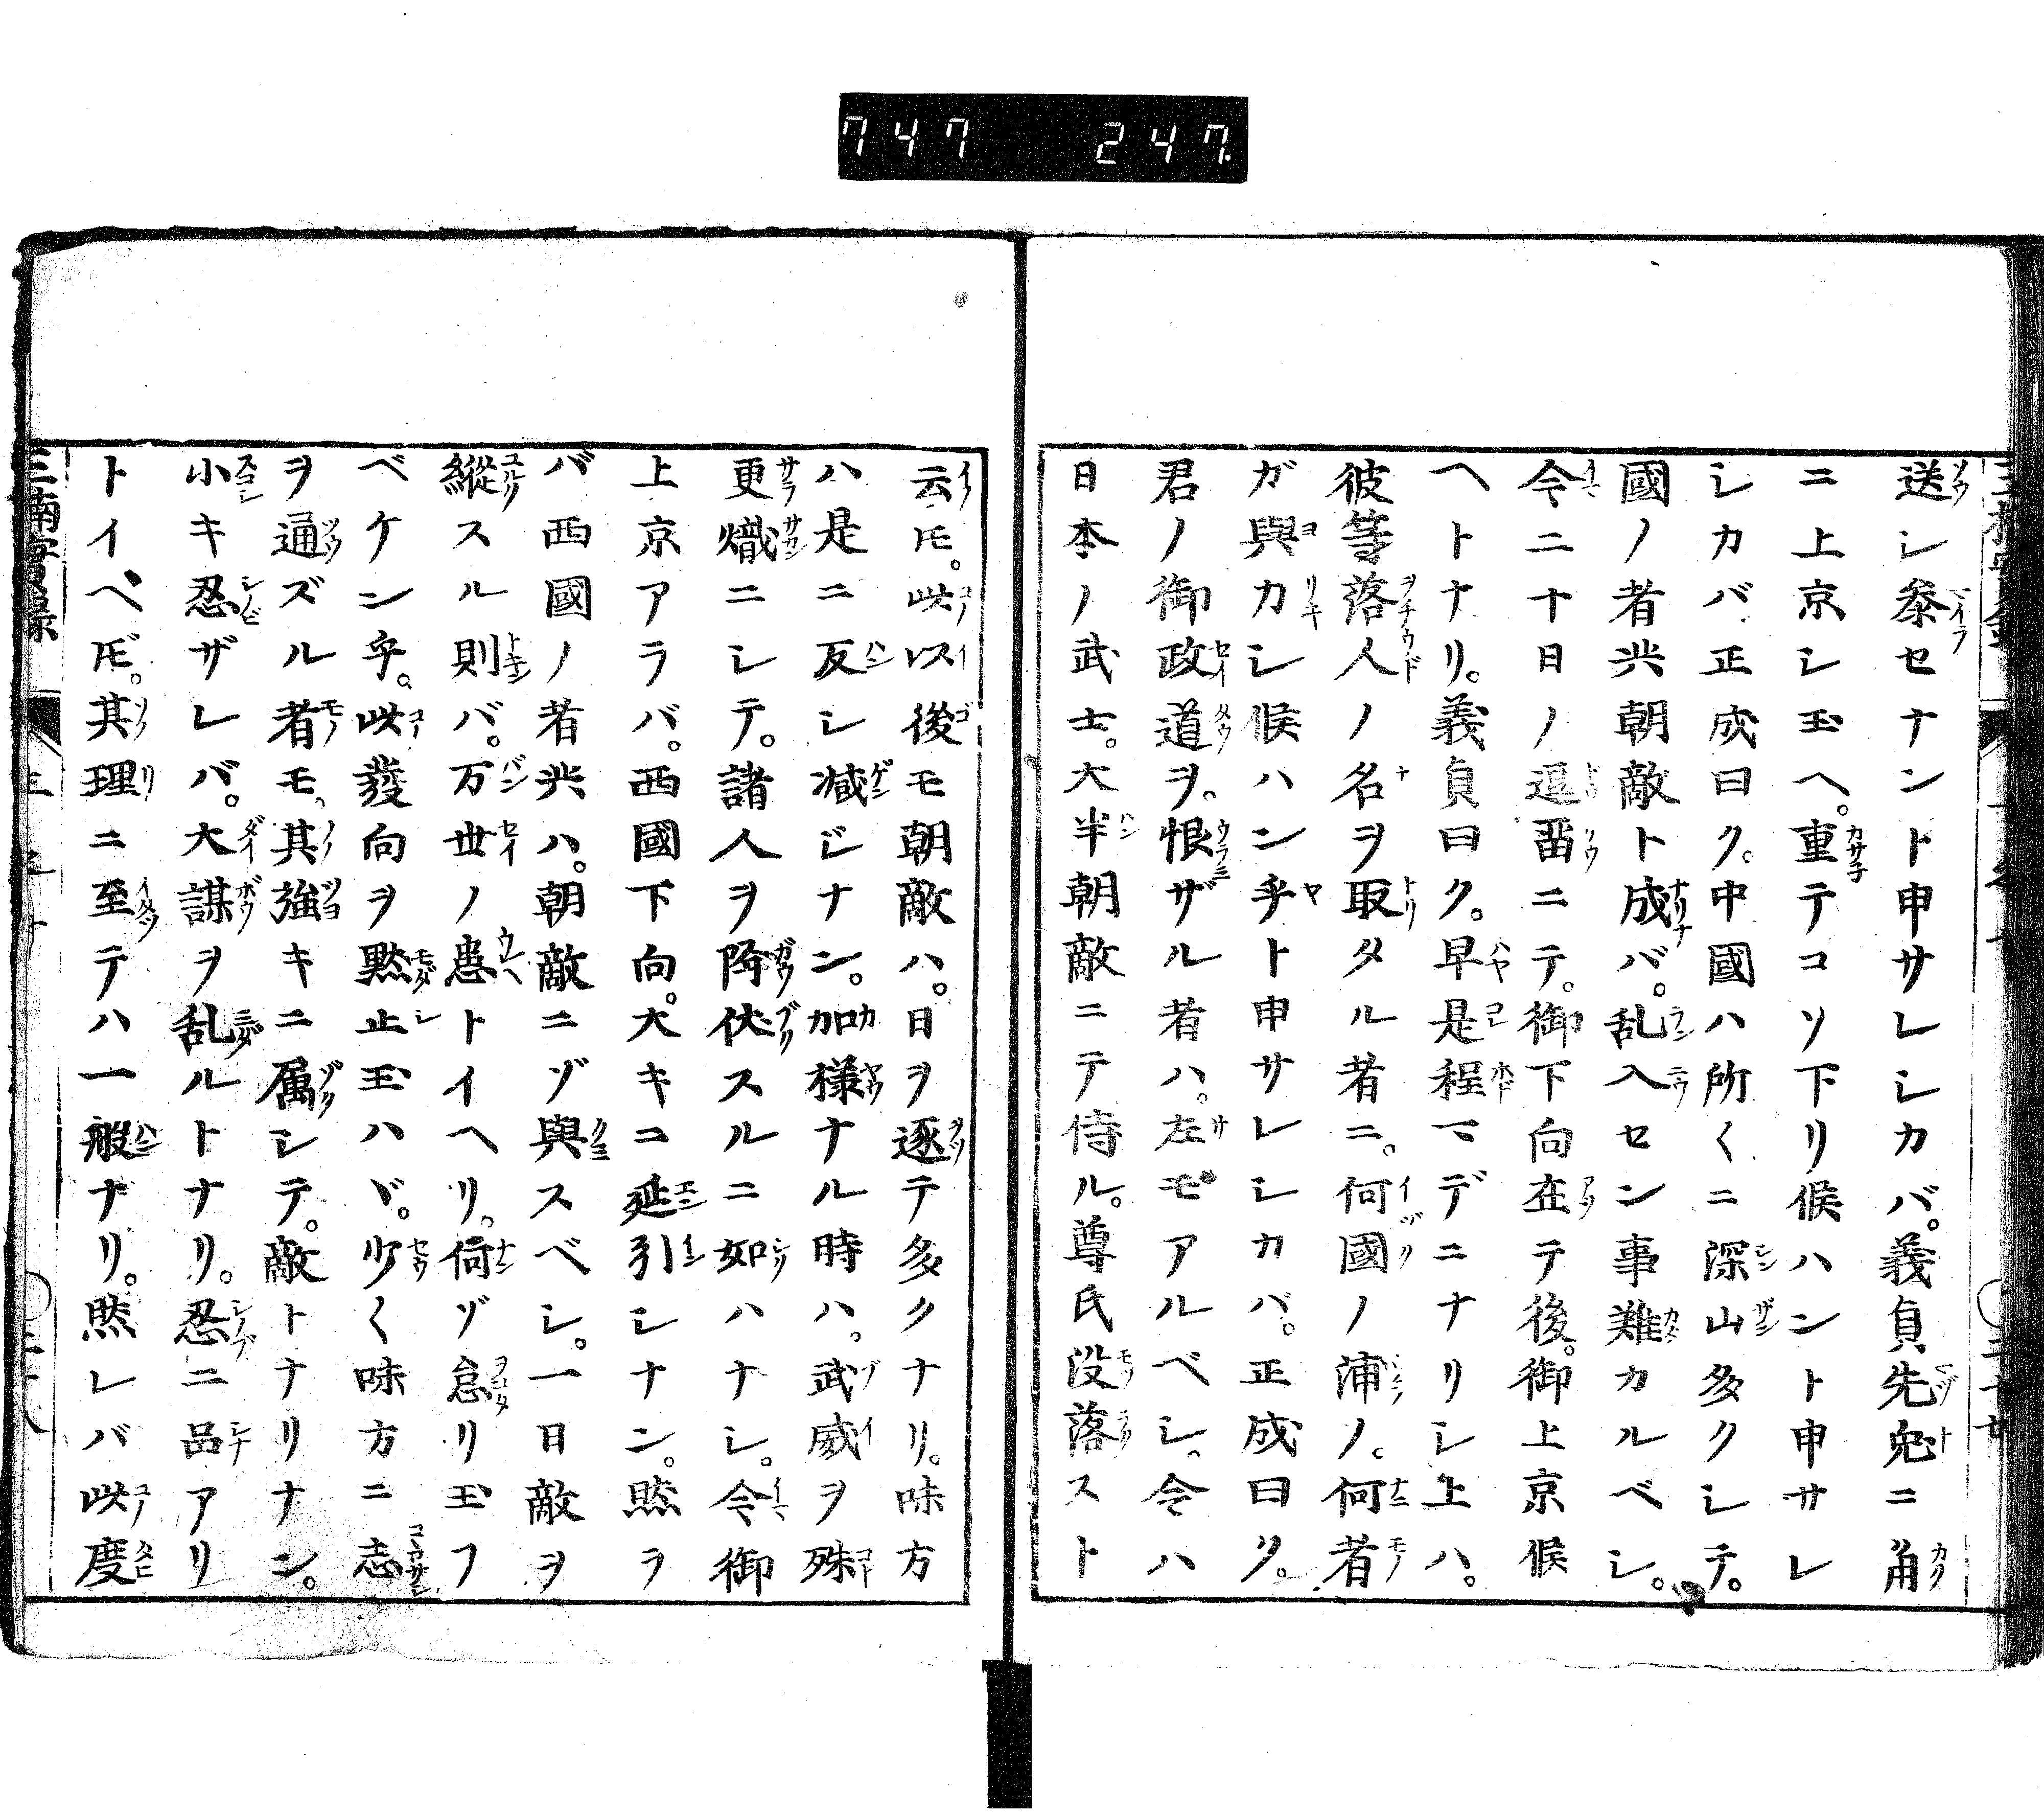 747 247.
送シ參セナント申サレシカバ。義貞先兎ニ角
ニ上京シ玉ヘ。重テコソ下リ候ハント申サレ
シカバ正成曰ク。中國ハ所〱ニ深山多クシテ。
國ノ者共朝敵ト成バ。乱入セン事難カルベシ。
今二十日ノ逗畱ニテ。御下向在テ後。御上京候
ヘトナリ。義貞曰ク。早是程マデニナリシ上ハ。
彼等落人ノ名ヲ取タル者ニ。何國ノ浦ノ。何者
ガ與カシ候ハン乎ト申サレシカバ。正成曰ク。
君ノ御政道ヲ。恨ザル者ハ。左モアルベシ。今ハ
日本ノ武士。大半朝敵ニテ侍ル。尊氏没落スト
云𪜈。此以後モ朝敵ハ。日ヲ逐テ多クナリ。味方
ハ是ニ反シ减ジナン。加様ナル時ハ。武威ヲ殊
更熾ニシテ。諸人ヲ降伏スルニ如ハナシ。今御
上京アラバ。西國下向。大キコ延引シナン。然ラ
バ西國ノ者共ハ。朝敵ニゾ與スベシ。一日敵ヲ
縱スル則バ。万世ノ患トイヘリ。何ゾ怠リ玉フ
ベケン乎。此發向ヲ黙止玉ハヾ。少〱味方ニ志
ヲ通ズル者モ。其強キニ属シテ。敵トナリナン。
小キ忍ザレバ。大謀ヲ乱ルトナリ。忍ニ品アリ
トイヘ𪜈。其理ニ至テハ一般ナリ。然レバ此度